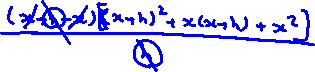 (x+h-x)[(x+h)²+x(x+h)+x²]
h